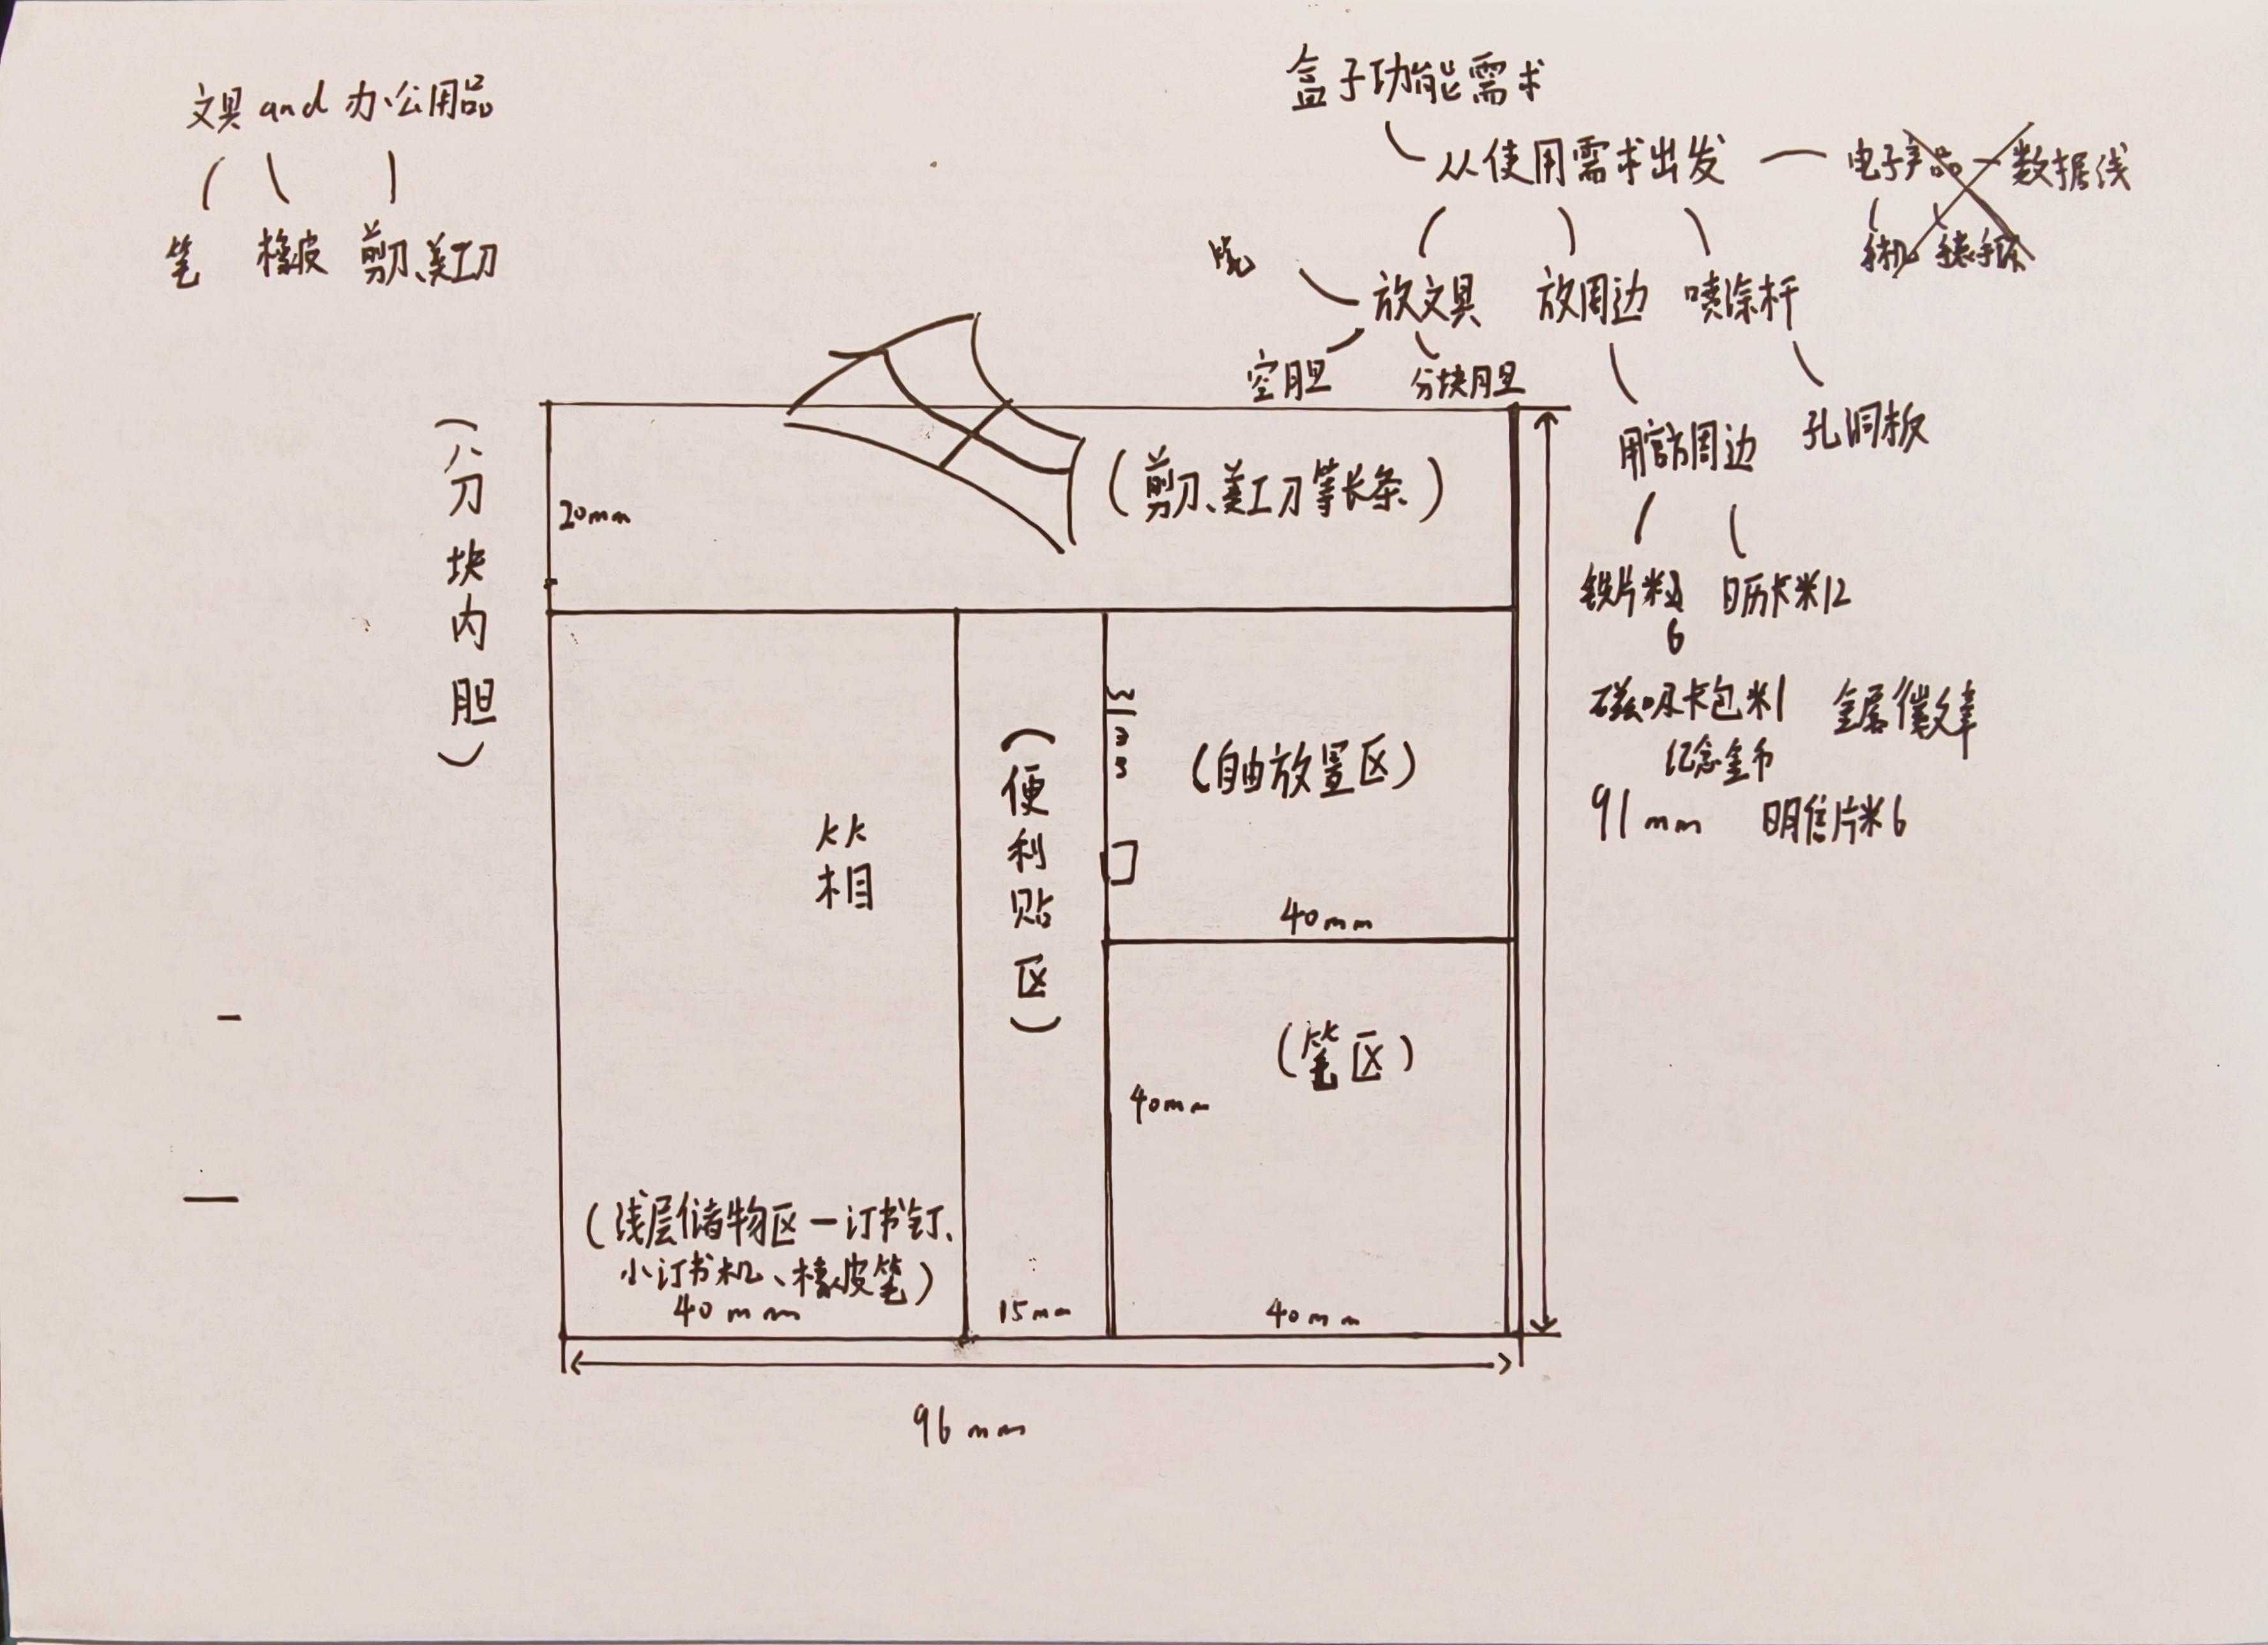 文具 and 办公用品
笔 橡皮 剪刀、美工刀
盒子功能需求
从使用需求出发
电子产品 数据线
手机
放文具 放周边 喷涂杆
空胆 分块胆
用官方周边 孔洞板
铁片米
6
日历卡米12
磁吸卡包米1 金属徽章
纪念金币
91mm 明信片米6
(分块内胆)
20mm
(剪刀、美工刀等长条)
(便利贴区)
31mm
(自由放置区)
40mm
(笔区)
40mm
(浅层储物区—订书钉、
小订书机、橡皮笔)
40mm
15mm
40mm
96mm